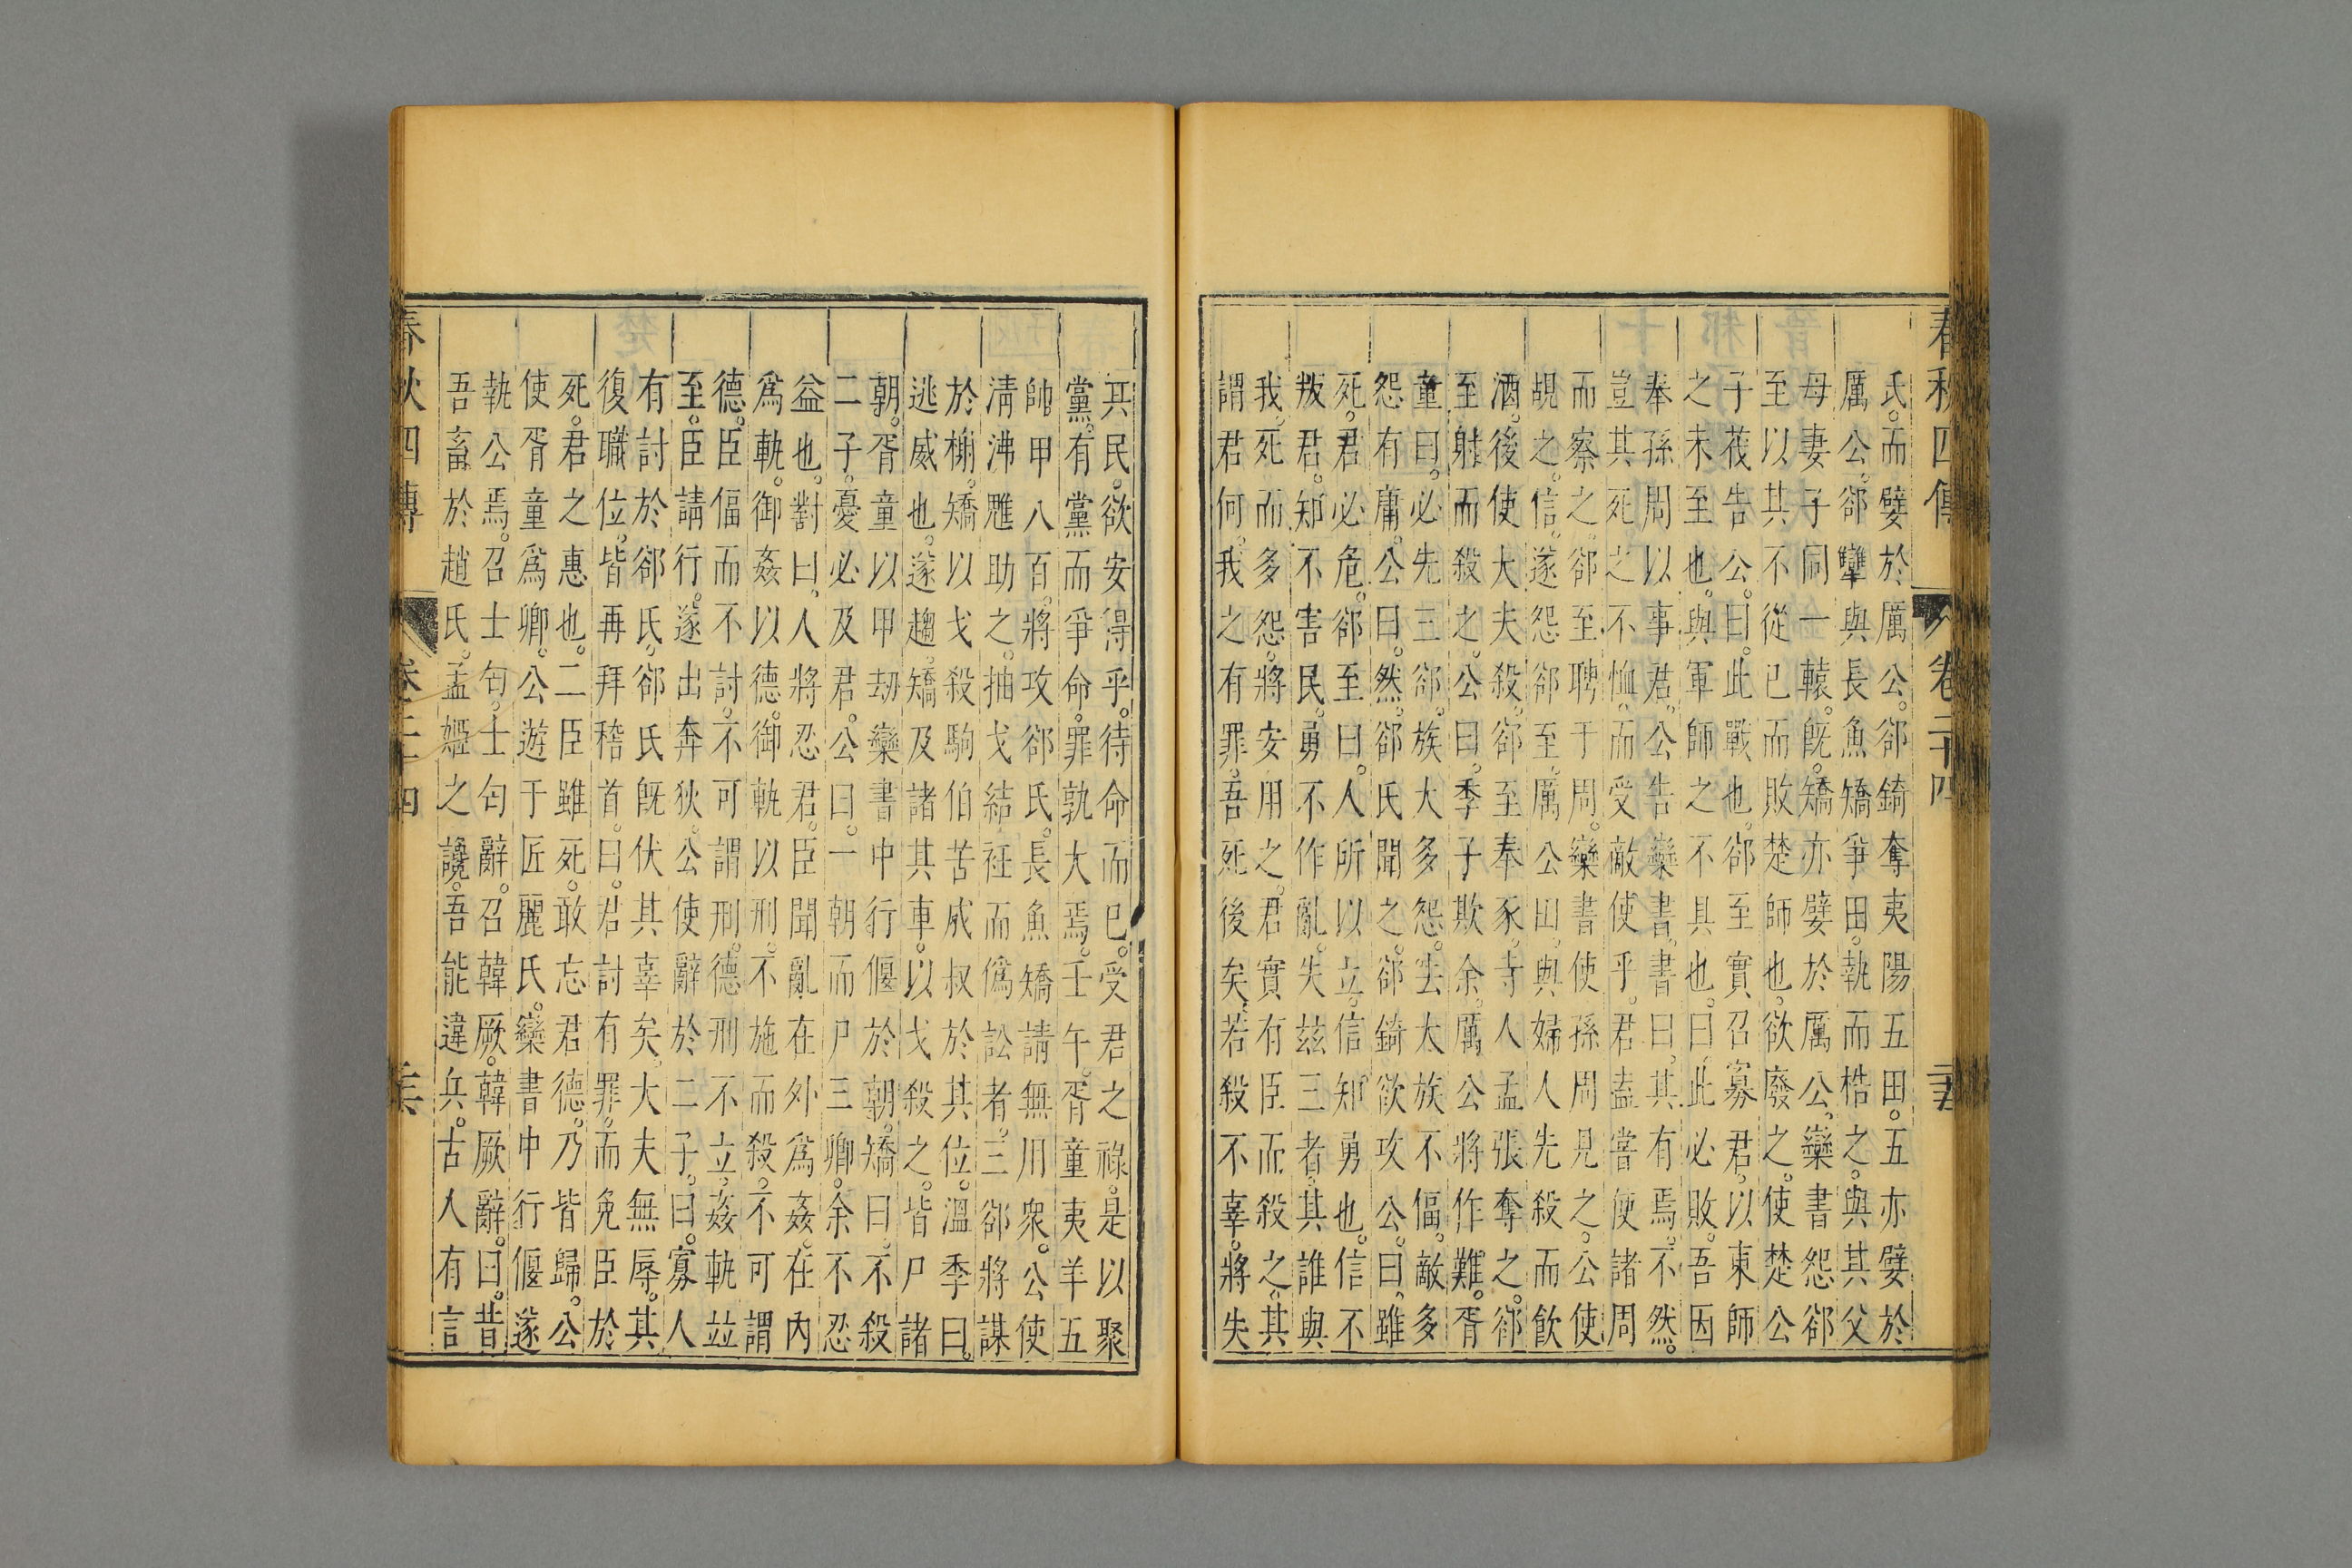 春秋四傳 卷二十四 二十五
氏。而嬖於厲公。郤錡奪夷陽五田。五亦嬖於
厲公。郤犫與長魚矯爭田。執而梏之。與其父
母妻子同一轅。既。矯亦嬖於厲公。欒書怨郤
至以其不從已而敗楚師也。欲廢之。使楚公
子茷告公。曰。此戰也。郤至實召寡君。以東師
之未至也。與軍師之不具也。曰。此必敗。吾因
奉孫周以事君。公告欒書。書曰。其有焉。不然。
豈其死之不恤。而受敵使乎。君盍嘗使諸周
而察之。郤至聘于周。欒書使孫周見之。公使
覘之。信。遂怨郤至。厲公田。與婦人先殺而飲
酒。後使大夫殺。郤至奉豕。寺人孟張奪之。郤
至射而殺之。公曰。季子欺余。厲公將作難。胥
童曰。必先三郤。族大多怨。去大族不偪。敵多
怨有庸。公曰。然。郤氏聞之。郤錡欲攻公。曰。雖
死。君必危。郤至曰。人所以立。信知勇也。信不
叛君。知不害民。勇不作亂。失茲三者。其誰與
我。死而多怨。將安用之。君實有臣而殺之。其
謂君何。我之有罪。吾死後矣。若殺不辜。將失
其民。欲安得乎。待命而已。受君之祿。是以聚
黨。有黨而爭命。罪孰大焉。壬午。胥童夷羊五
帥甲八百。將攻郤氏。長魚矯請無用衆。公使
清沸魋助之。抽戈結衽而僞訟者。三郤將謀
於榭。矯以戈殺駒伯苦成叔於其位。溫季曰。
逃威也。遂趨。矯及諸其車。以戈殺之。皆尸諸
朝。胥童以甲劫欒書中行偃於朝。矯曰。不殺
二子。憂必及君。公曰。一朝而尸三卿。余不忍
益也。對曰。人將忍君。臣聞亂在外爲姦。在內
爲軌。御姦以德。御軌以刑。不施而殺。不可謂
德。臣偪而不討。不可謂刑。德刑不立。姦軌竝
至。臣請行。遂出奔狄。公使辭於二子。曰。寡人
有討於郤氏。郤氏既伏其辜矣。大夫無辱。其
復職位。皆再拜稽首。曰。君討有罪。而免臣於
死。君之惠也。二臣雖死。敢忘君德。乃皆歸。公
使胥童爲卿。公遊于匠麗氏。欒書中行偃遂
執公焉。召士匄。士匄辭。召韓厥。韓厥辭。曰。昔
吾畜於趙氏。孟姬之讒。吾能違兵。古人有言
春秋四傳 卷二十四 二十六